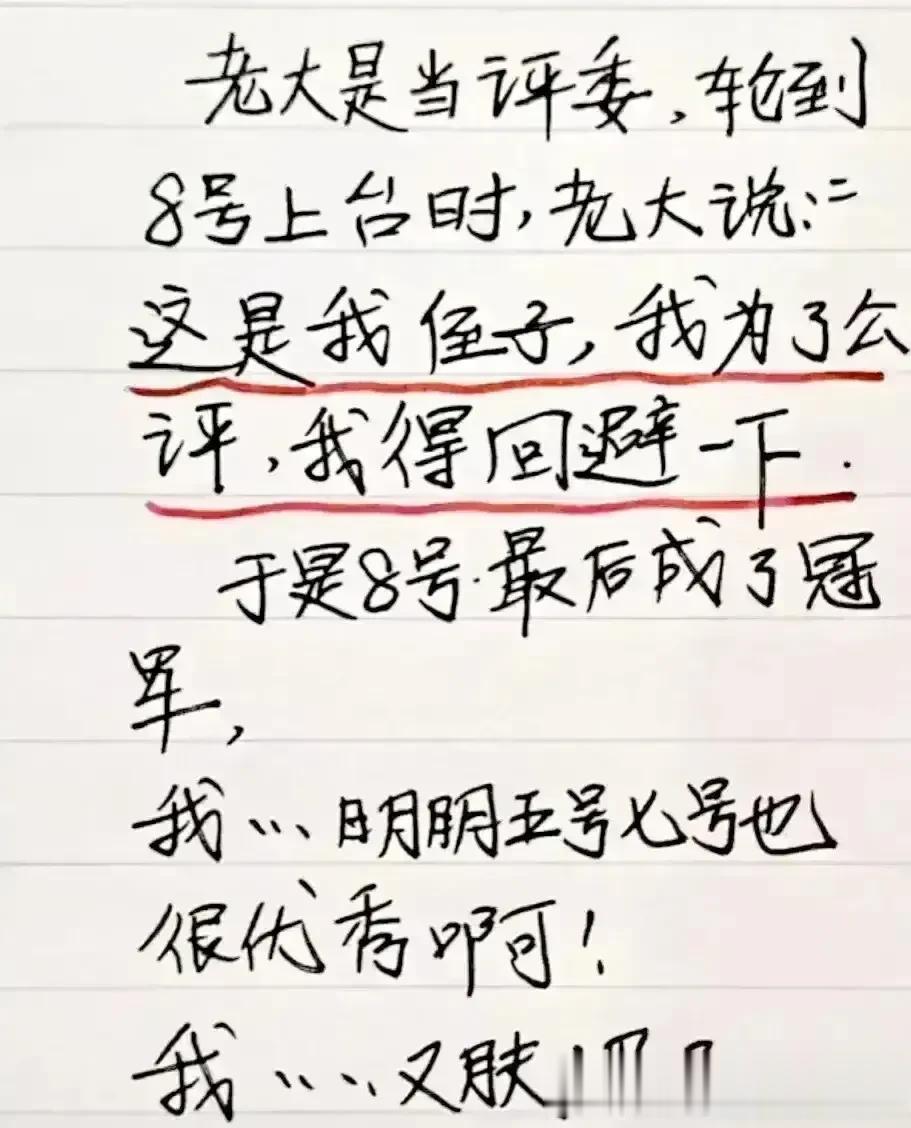 老大是当评委，轮到
8号上台时，老大说：“
这是我侄子，我为了公
评，我得回避一下.
于是8号.最后成了冠
军，
我…明明五号七号也
很优秀啊！
我……又肤